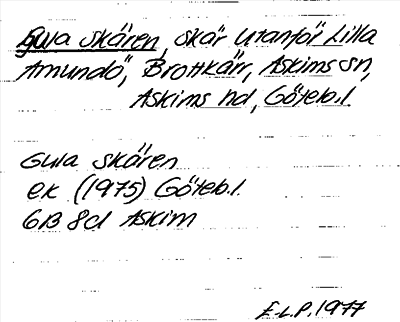 Gula skären, skär utanför Lilla
Amundö, Brottkärr, Askims sn,
Askims hd, Göteb.l.
Gula skären
ek (1975) Göteb.l.
6B 8d Askim
E.L.P. 1977